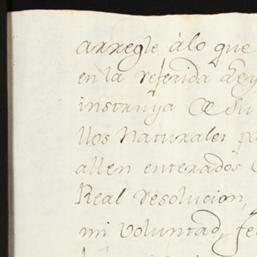 arregle álo que
en la referida Ley
instruya
llos Naturales
allen enterados
Real resolucion,
mi voluntad, fe